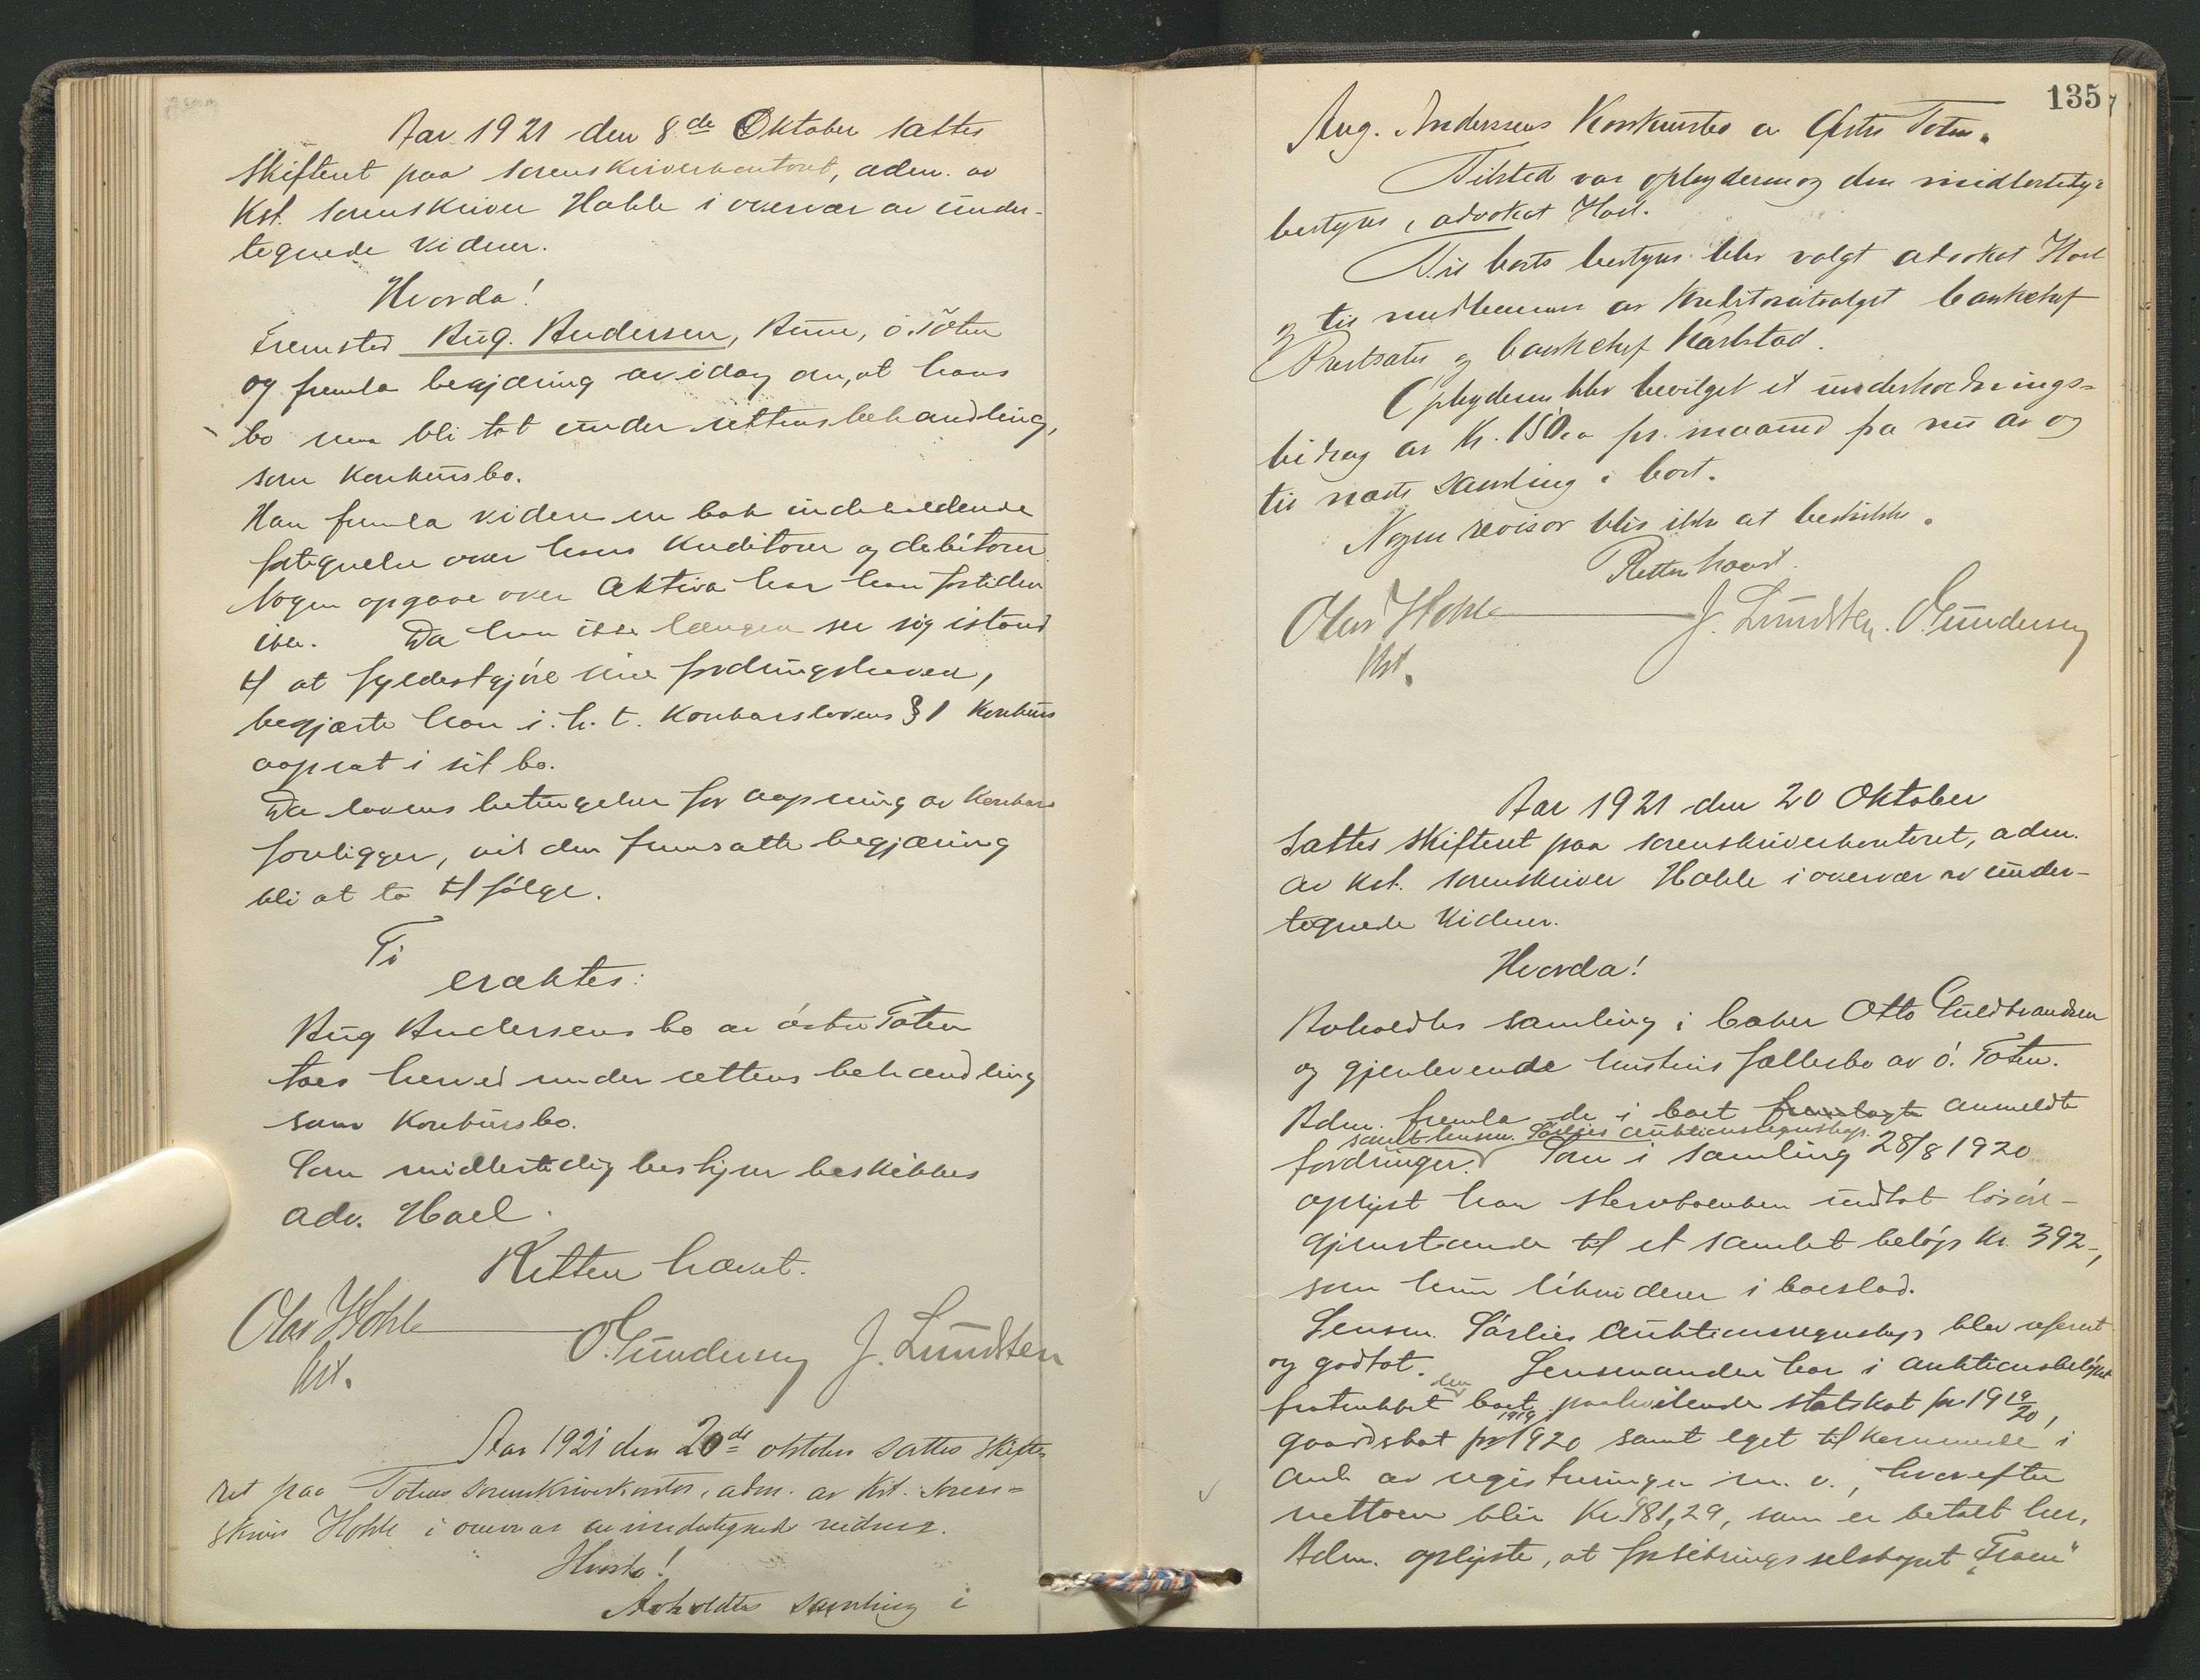 Aar 1921 den 8de Oktober sattes
skifteret paa sorenskriverkontoret, adm. av
Kst. sorenskriver Hohle i overvær av under-
tegnede vidner.
Hvorda!
Fremsted Aug. Andersen, ö. Toten
og fremla begjæring av idag om, at hans
bo maa bli tat under rettens behandling,
som Konkursbo.
Han fremla videre en bok indeholdende
fortegnelse over hans Kreditorer og debitorer
Nogen opgave over Aktiva har han fortiden
ikke. Da han ikke længer ser sig istand
til at fyldestgjöre sine fordringshavere,
begjærte han i. h. t. Konkurslovens § 1 Konkurs
aapnet i sit bo.
Da lovens betingelser for aapning av Konkurs
foreligger, vil den fremsatte begjæring
bli at ta til fölge.
Ti
eragtes:
Aug Andersens bo av östre Toten
taes herved under rettens behandling
som Konkursbo.
Som midlertidig bestyrer beskikkes
adv. Hoel.
Retten hævet.
Olav Hohle O. Gundersen J. Lundsten
kst.
Aar 1921 den 20de oktober sattes skifte-
ret paa Totens Sorenskriverkontor, adm. av Kst. Soren=
skriver Hohle i overvær av undertegnede vidner.
Hvorda!
Avholdtes samling i
135
Aug. Anderssens Konkursbo av Østre Toten.
Tilsted var opbyderen og den midlertidige
bestyrer, advokat Hoel.
Til boets bestyrer blev valgt advokat Hoel
og til medlemmer av Kreditorutvalget bankchef
Prestsæter og bankchef Karlstad.
Opbyderen blev bevilget et underholdnings-
bidrag av Kr. 150.00 pr. maaned fra nu av og
til næste samling i boet.
Nogen revisor blir ikke at beskikke.
Retten hævet.
Olav Hohle J. Lundsten. O. Gundersen
Kst.
Aar 1921 den 20 Oktober
sattes skifteret paa sorenskriverkontoret, adm.
av Kst. sorenskriver Hohle i overvær av under-
tegnede vidner.
Hvorda!
Avholdtes samling i baker Otto Guldbrandsen
og gjenlevende hustrus fællesbo av ö. Toten.
Adm. fremla de i boet fremlagte anmeldte
samt lensm. Sörlies auktionsregnskap.
fordringer. Som i samling 28/8 1920
oplyst har stervboenken utat lösöre-
gjenstande til et samlet belöp kr. 392-,
som hun likviderer i boeslod.
Lensm. Sörlies auktionsregnskap blev referert
og godtat. Lensmanden har i auktionsbelöpet
fratrukket den boet paahvilende statskat for 19 19/20,
gaardskat for 1919 1920 samt eget tilkommende i
anl. av registreringen m. v., hvorefter
nettoen blir Kr. 981,29, som er betalt her.
Adm. oplyste, at forsikringsselskapet "Fram"